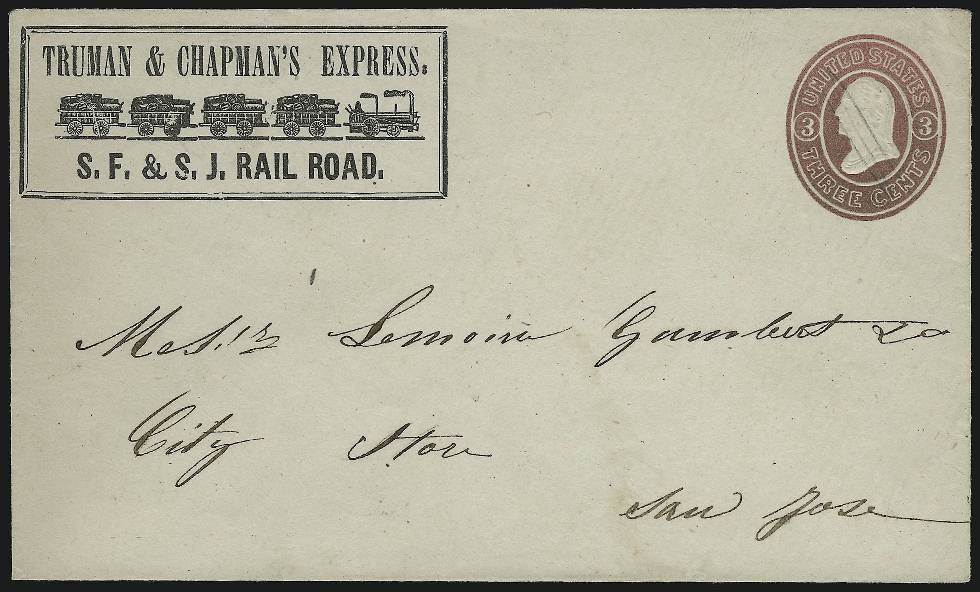 TRUMAN & CHAPMAN'S EXPRESS.
S. F. & S. J. RAIL ROAD.
UNITED STATES
3 3
THREE CENTS
Mess.rs Lemoine Gambert & Co
City Store
San Jose